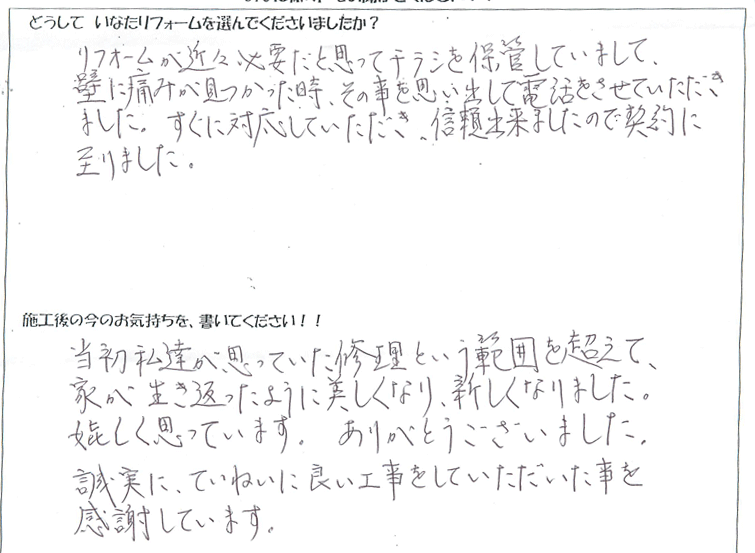 どうして いなたリフォームを選んでくださいましたか？
リフォームが近々必要だと思ってチラシを保管していまして、
壁に痛みが見つかった時、その事を思い出して電話をさせていただき
ました。すぐに対応していただき、信頼出来ましたので契約に
至りました。
施工後の今のお気持ちを、書いてください！！
当初私達が思っていた修理という範囲を超えて、
家が生き返ったように美しくなり、新しくなりました。
嬉しく思っています。 ありがとうございました。
誠実に、ていねいに良い工事をしていただいた事を
感謝しています。